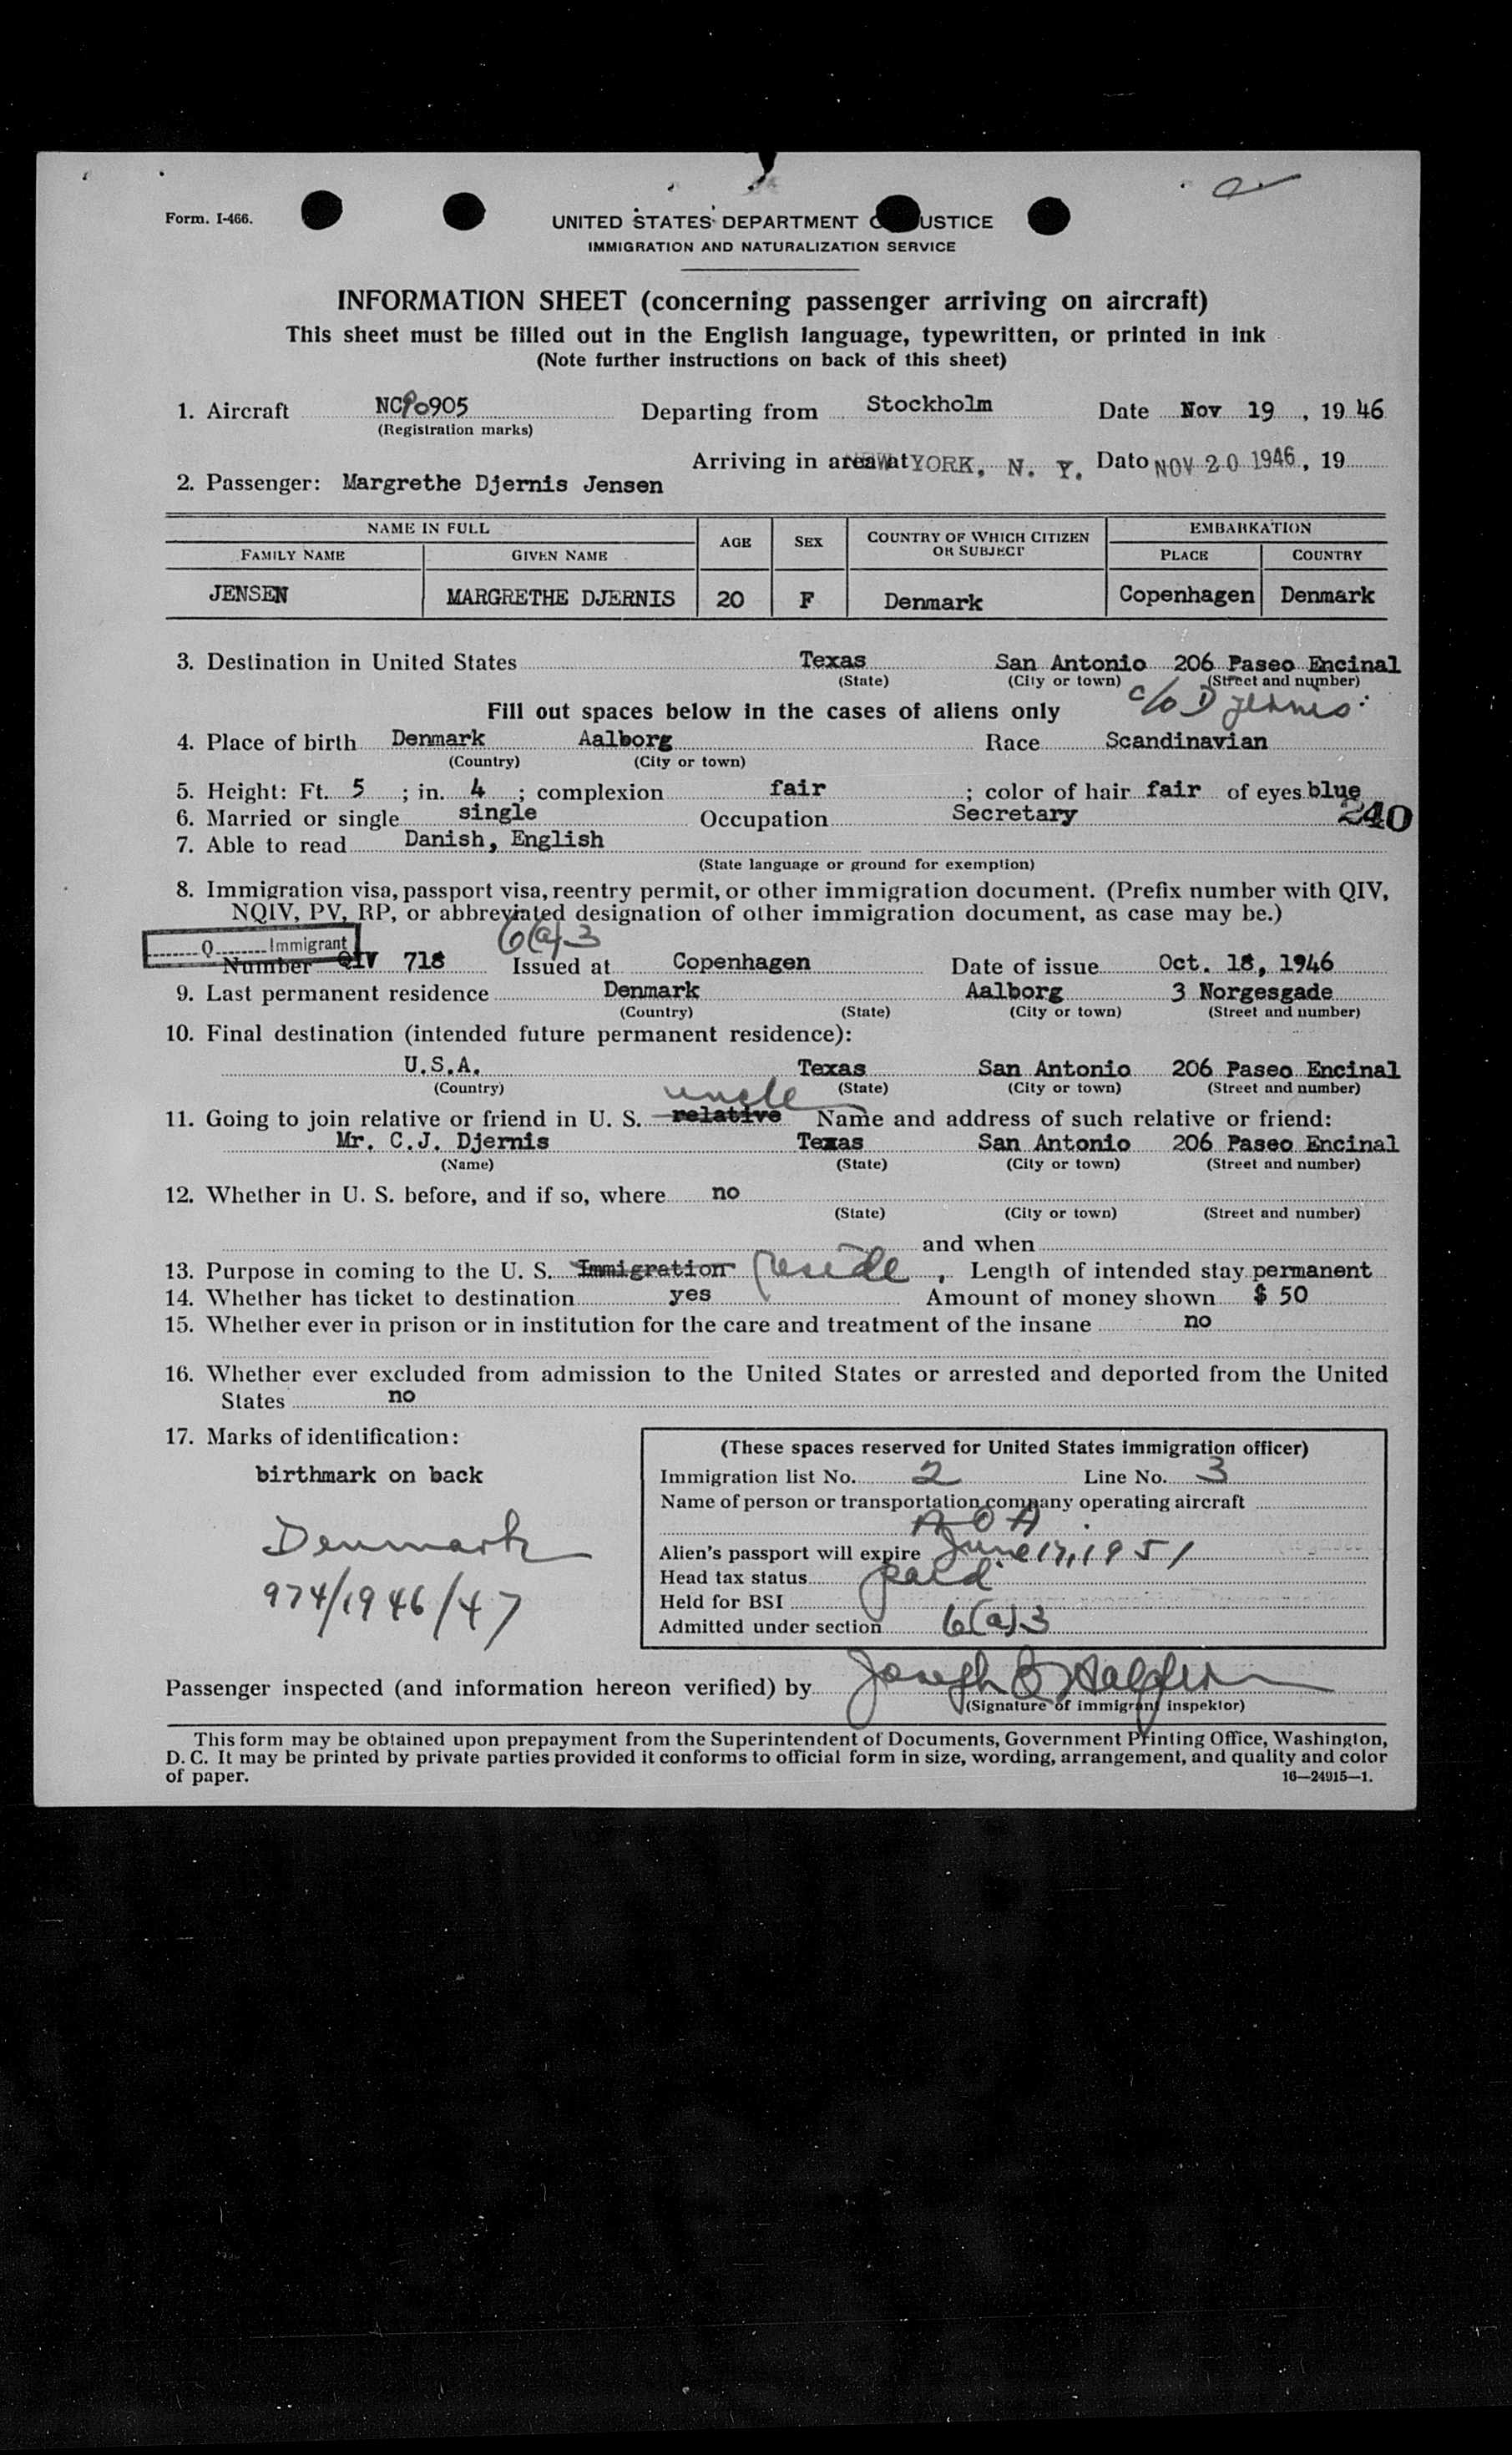 Form. I-466.
UNITED STATES DEPARTMENT O USTICE
IMMIGRATION AND NATURALIZATION SERVICE
INFORMATION SHEET (concerning passenger arriving on aircraft)
This sheet must be filled out in the English language, typewritten, or printed in ink
(Note further instructions on back of this sheet)
1. Aircraft NC90905 Departing from Stockholm Date Nov 19, 1946
(Registration marks)
Arriving in area at NEW YORK, N. Y. Date NOV 20 1946, 19
2. Passenger: Margrethe Djernis Jensen
NAME IN FULL AGE SEX COUNTRY OF WHICH CITIZEN OR SUBJECT EMBARKATION
FAMILY NAME GIVEN NAME PLACE COUNTRY
JENSEN MARGRETHE DJERNIS 20 F Denmark Copenhagen Denmark
3. Destination in United States Texas San Antonio 206 Paseo Encinal
(State) (City or town) (Street and number)
c/o Djernis
Fill out spaces below in the cases of aliens only
4. Place of birth Denmark Aalborg Race Scandinavian
(Country) (City or town)
5. Height: Ft. 5 ; in. 4 ; complexion fair ; color of hair fair of eyes blue
6. Married or single single Occupation Secretary 240
7. Able to read Danish, English
(State language or ground for exemption)
8. Immigration visa, passport visa, reentry permit, or other immigration document. (Prefix number with QIV,
NQIV, PV, RP, or abbreviated designation of other immigration document, as case may be.)
Q Immigrant 6(a)3
Number QIV 718 Issued at Copenhagen Date of issue Oct. 18, 1946
9. Last permanent residence Denmark Aalborg 3 Norgesgade
(Country) (State) (City or town) (Street and number)
10. Final destination (intended future permanent residence):
U.S.A. Texas San Antonio 206 Paseo Encinal
(Country) (State) (City or town) (Street and number)
uncle
11. Going to join relative or friend in U. S. relative Name and address of such relative or friend:
Mr. C.J. Djernis Texas San Antonio 206 Paseo Encinal
(Name) (State) (City or town) (Street and number)
12. Whether in U. S. before, and if so, where no
(State) (City or town) (Street and number)
and when
13. Purpose in coming to the U. S. Immigration reside, Length of intended stay permanent
14. Whether has ticket to destination yes Amount of money shown $ 50
15. Whether ever in prison or in institution for the care and treatment of the insane no
16. Whether ever excluded from admission to the United States or arrested and deported from the United
States no
17. Marks of identification:
birthmark on back
Denmark
974/1946/47
(These spaces reserved for United States immigration officer)
Immigration list No. 2 Line No. 3
Name of person or transportation company operating aircraft
AOA
Alien's passport will expire June 17, 1951
Head tax status paid
Held for BSI
Admitted under section 6(a)3
Passenger inspected (and information hereon verified) by Joseph
(Signature of immigrant inspektor)
This form may be obtained upon prepayment from the Superintendent of Documents, Government Printing Office, Washington,
D. C. It may be printed by private parties provided it conforms to official form in size, wording, arrangement, and quality and color
of paper. 16—24915—1.